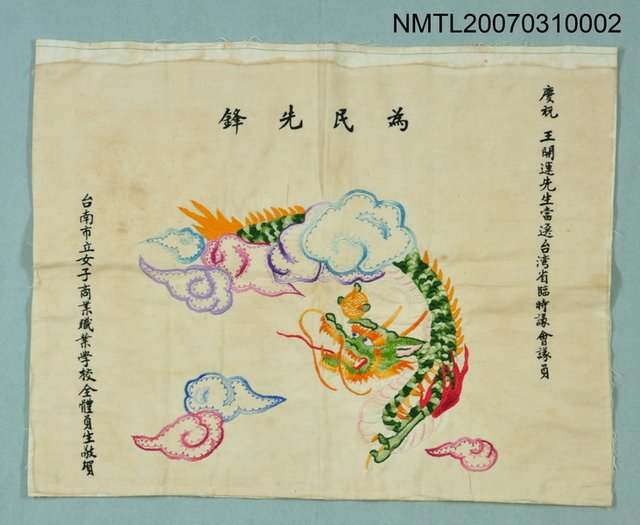 NMTL20070310002
慶祝 王開運先生當選台湾省臨時議會議員
為民先鋒
台南市立女子商業職業學校全體員生敬贺